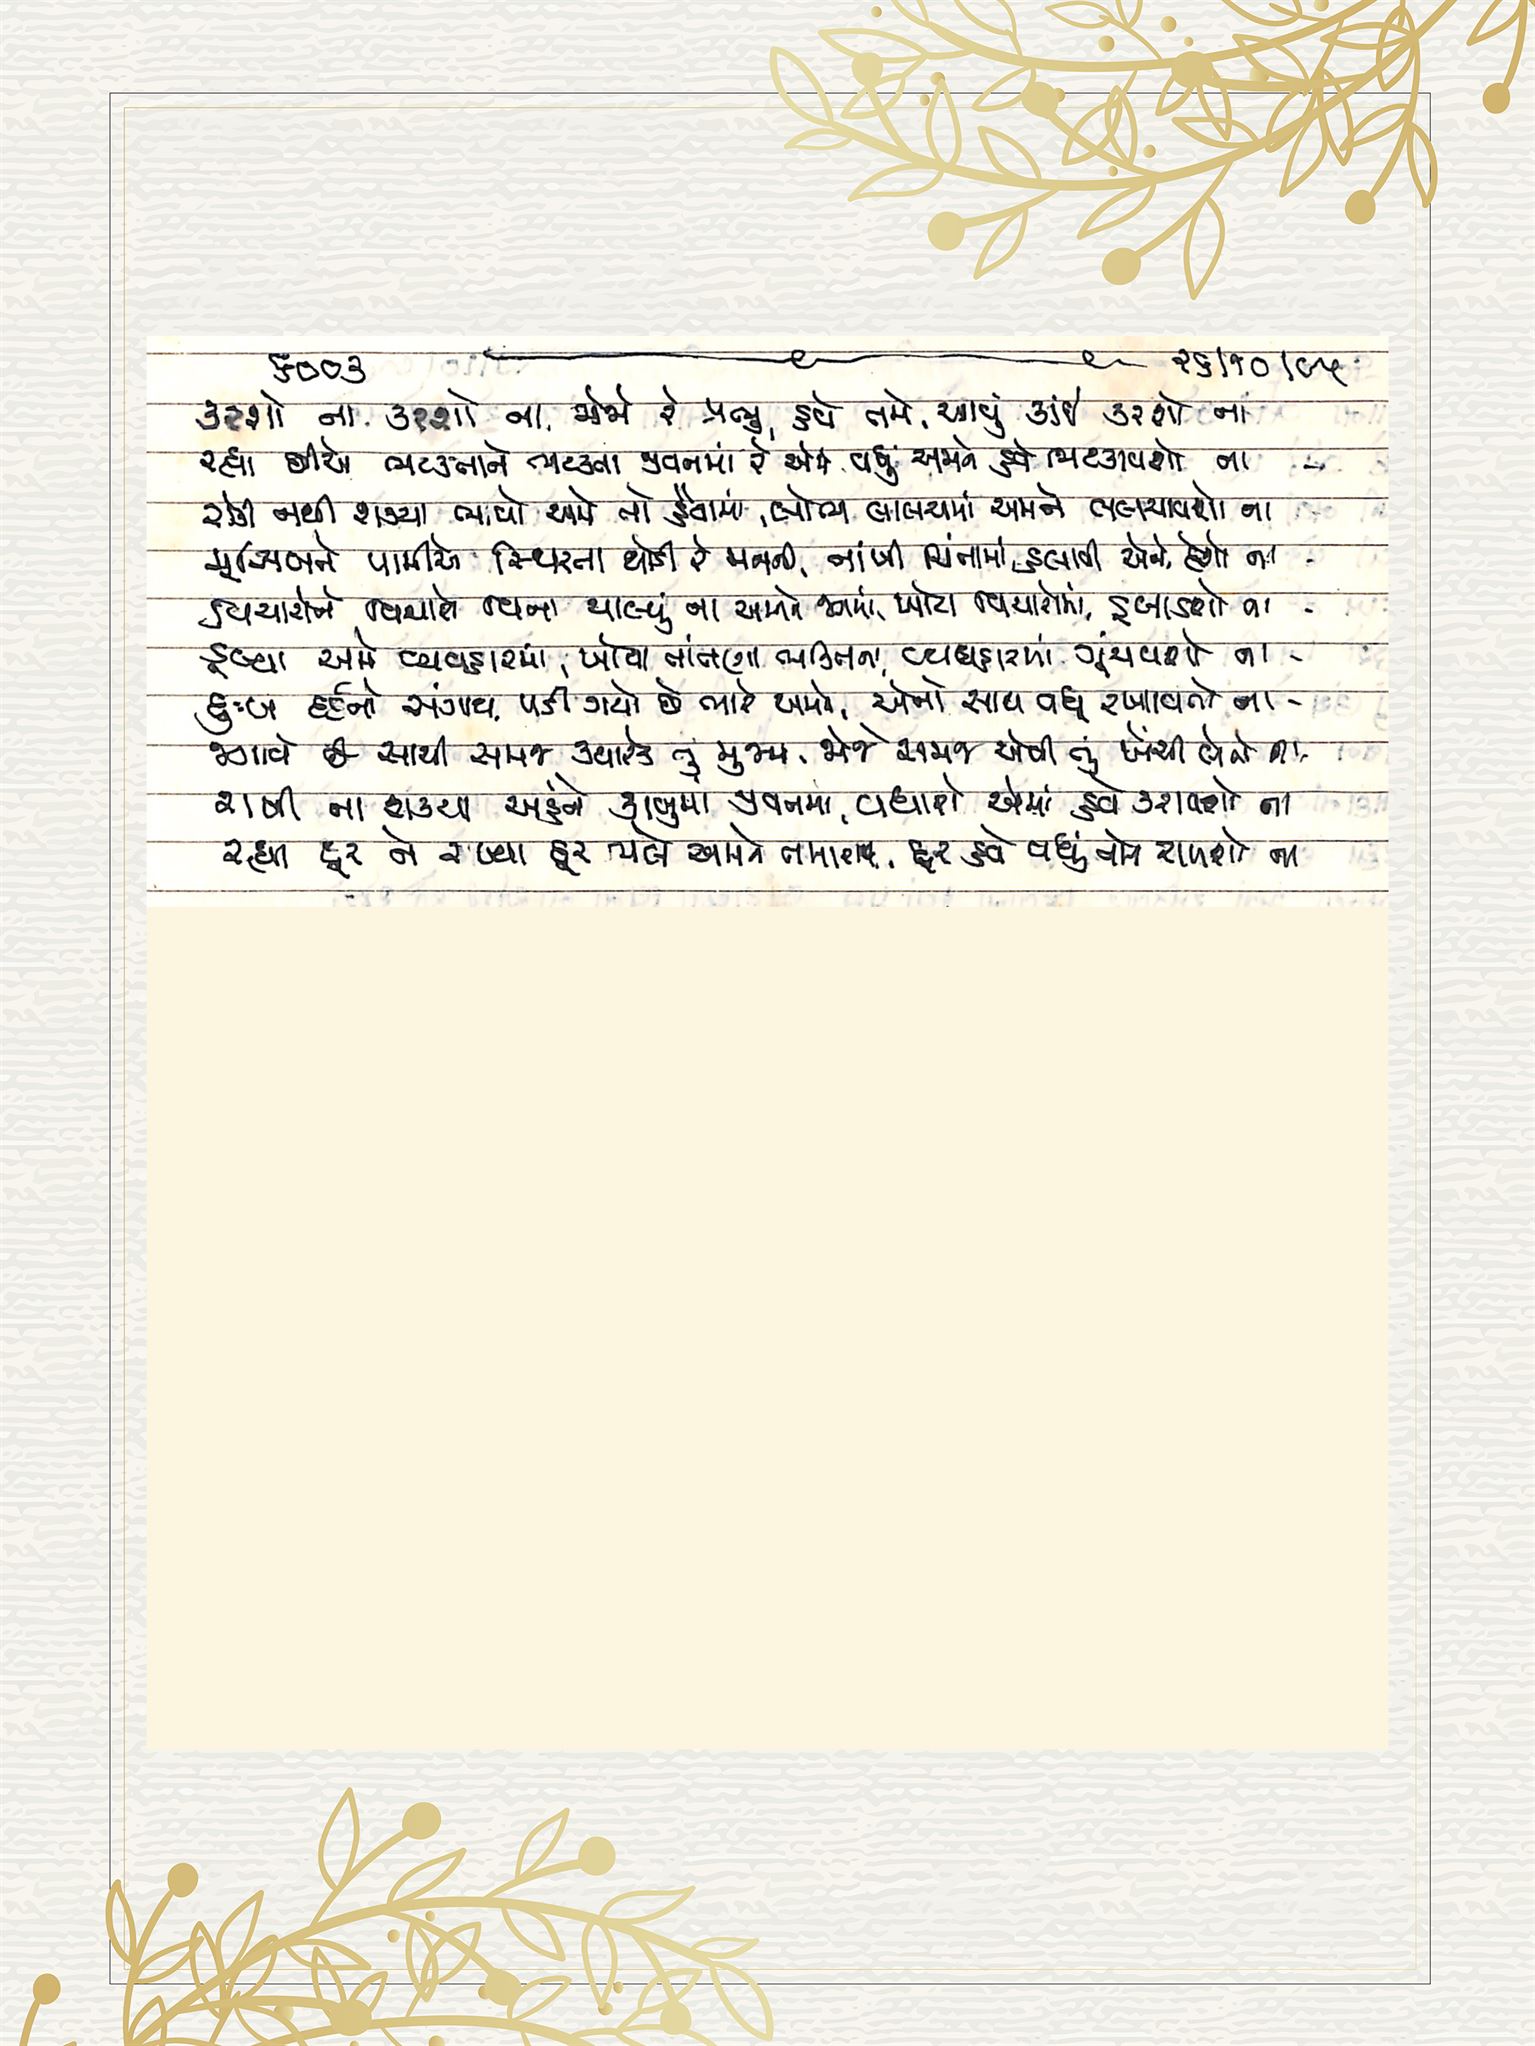 ૬૦૦૩ ૨૬/૧૦/૯૫
કરશો ના કરશો ના, જોજો રે પ્રભુ, હવે તમે, આવું કાંઈ કરશો ના
રહ્યા છીએ ભટકતાને ભટકતા જીવનમાં રે એમ વધુ અમને હવે ભટકાવશો ના
રોકી નથી શક્યા ભાવો અમે તો હૈયામાં, લોભ લાલચમાં અમને લલચાવશો ના
મુશ્કેલીને પામીએ સ્થિરતા થોડી રે મનની, નાંખી ચિંતામાં, હલાવી એને દેશો ના
વિચારોને વિચારો વિના ચાલ્યું ના અમને જગમાં, ખોટા વિચારોમાં, ડુબાડશો ના
ડૂબ્યા અમે વ્યવહારમાં, ખોયા તાંતણા ભક્તિના, વ્યવહારમાં ગૂંચવશો ના
દુઃખ દર્દનો સંગાથ, પડી ગયો છે ભારે અમને, એનો સાથ વધુ રખાવતો ના
જાગે છે સાચી સમજ ક્યારેક તું મુજમાં, જોજે સમજ એવી તું ખેંચી લેતો ના
રાખી ના શક્યા અહંને કાબુમાં જીવનમાં, વધારો એમાં હવે કરાવશો ના
રહ્યા દૂર ને રાખ્યા દૂર ભલે અમને તમારાથી, દૂર હવે વધુ રાખશો ના